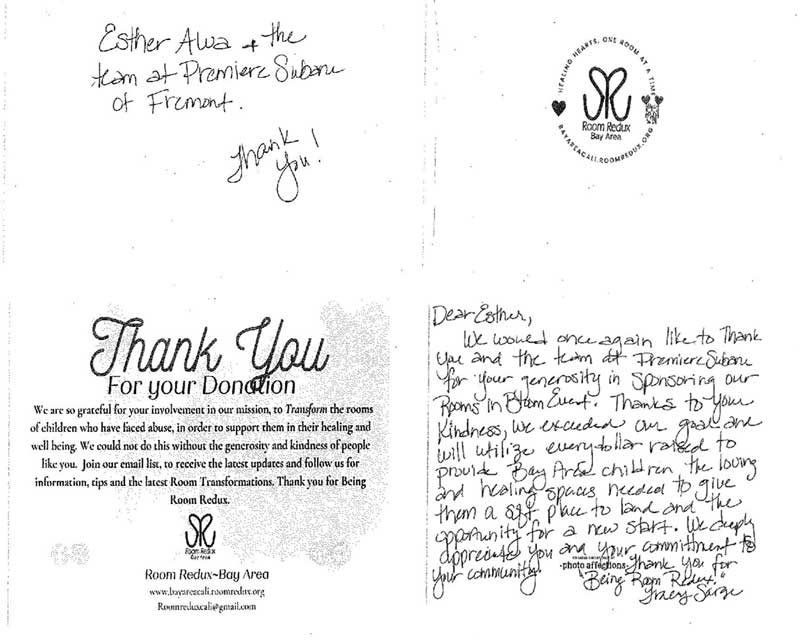 Esther Alva + the
team at Premiere Subaru
of Fremont.
Thank
You!
HEALING HEARTS, ONE ROOM AT A TIME
Room Redux
Bay Area
BAYAREACALI.ROOMREDUX.ORG
Thank You
For your Donation
We are so grateful for your involvement in our mission, to Transform the rooms
of children who have faced abuse, in order to support them in their healing and
well being. We could not do this without the generosity and kindness of people
like you. Join our email list, to receive the latest updates and follow us for
information, tips and the latest Room Transformations. Thank you for Being
Room Redux.
Room Redux
Bay Area
Room Redux-Bay Area
www.bayareacali.roomredux.org
Roomreduxcali@gmail.com
Dear Esther,
We would once again like to Thank
you and the team at Premiere Subaru
for your generosity in sponsoring our
Rooms in Bloom Event. Thanks to your
kindness, we exceeded our goal and
will utilize every dollar raised to
provide Bay Area children the loving
and healing spaces needed to give
them a soft place to land and the
opportunity for a new start. We deeply
appreciate you and your commitment to
your community.
·photo affections·
Thank you for
"Being Room Redux."
Tracy